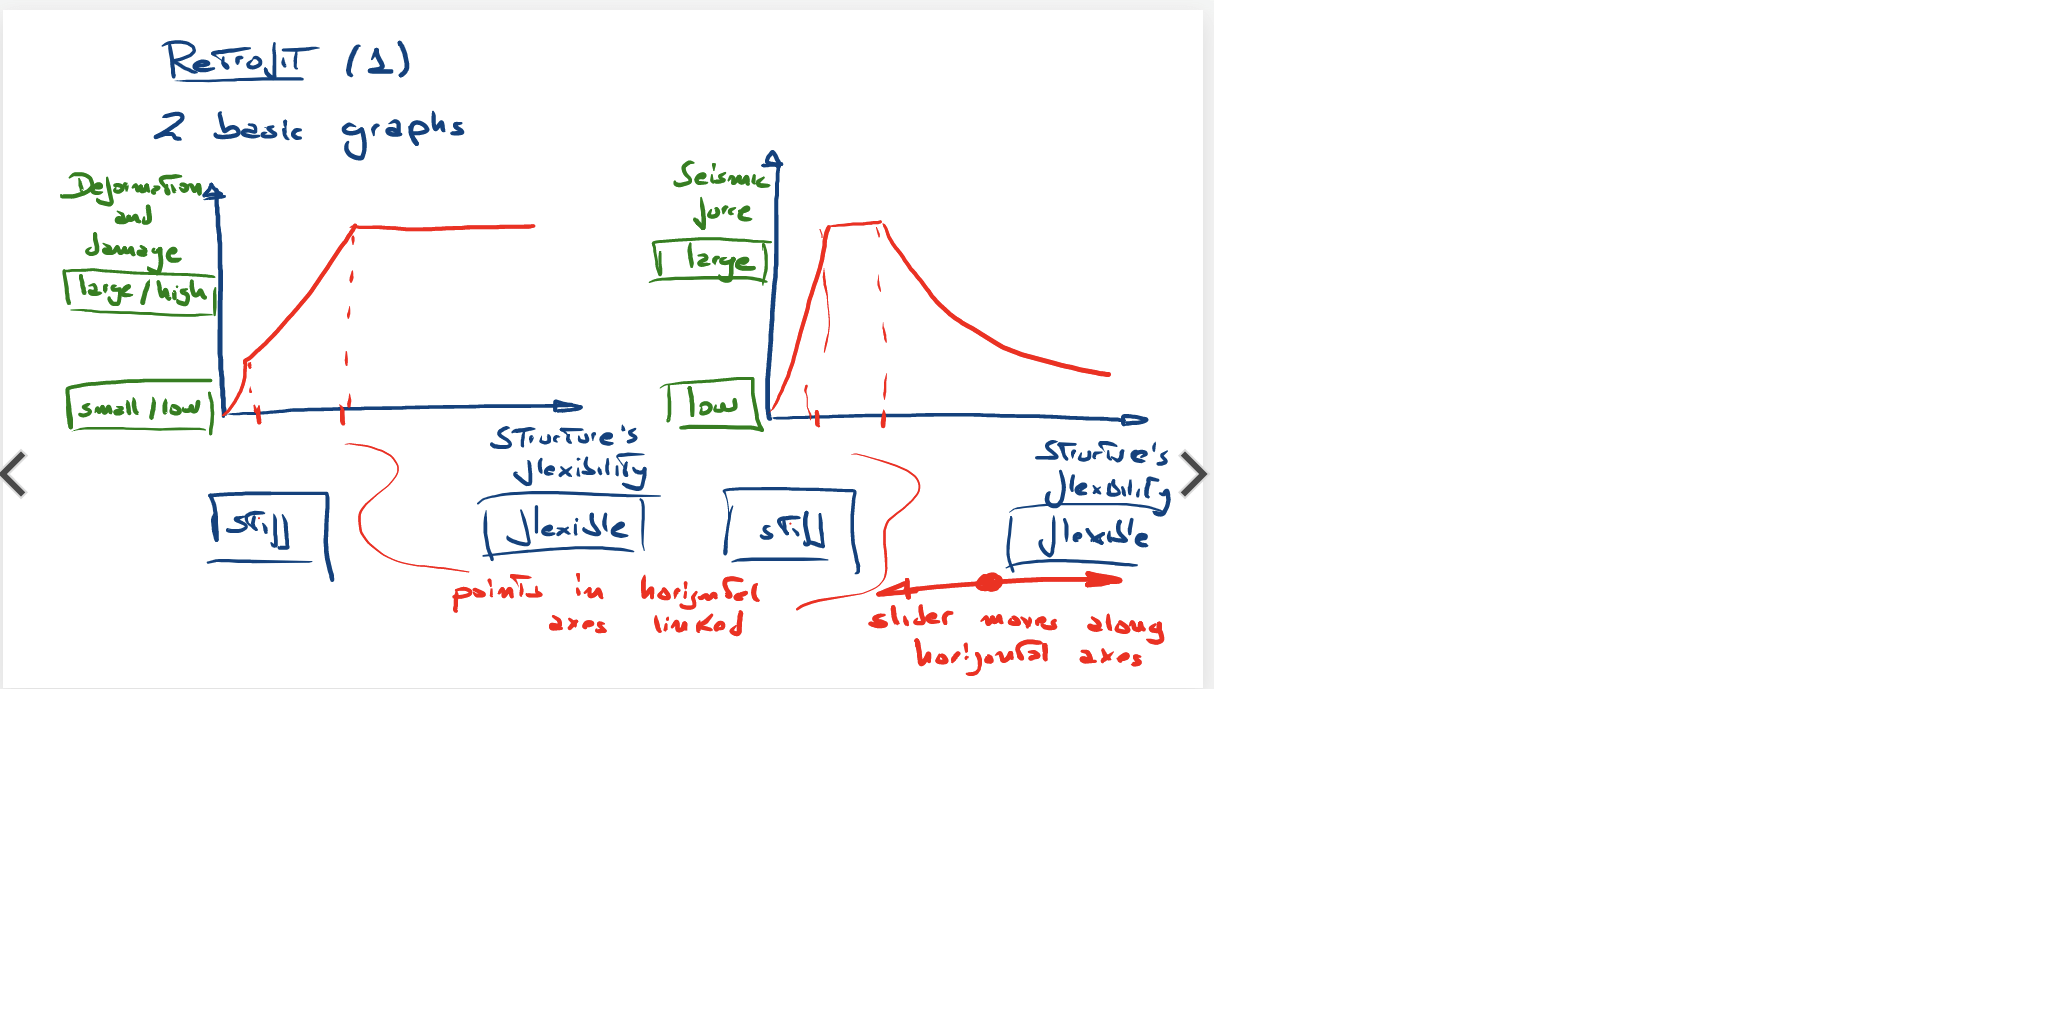 Retrofit (1)
2 basic graphs
Deformation
and
damage
large/high
small/low
Structure's
flexibility
stiff
flexible
Seismic
force
large
low
Structure's
flexibility
stiff
flexible
points in horizontal
axes linked
slider moves along
horizontal axes